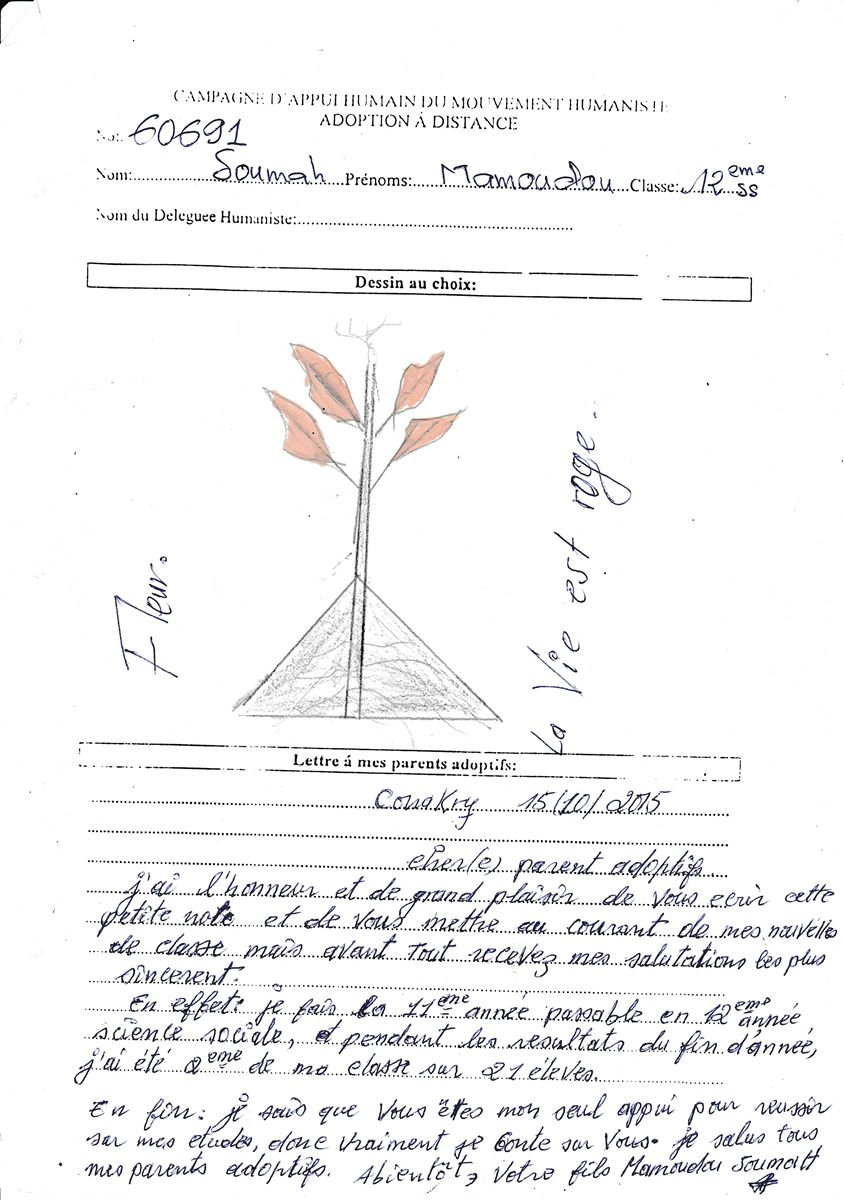 CAMPAGNE D'APPUI HUMAIN DU MOUVEMENT HUMANISTE
ADOPTION À DISTANCE
No:. 60691
Nom: Soumah Prénoms: Mamoudou Classe: 12eme SS
Nom du Deleguee Humaniste:
Dessin au choix:
Fleur.
La Vie est roge..
Lettre á mes parents adoptifs:
Conakry 15/10/2015
cher(e) parent adoptifs
j'ai l'honneur et de grand plaisir de vous ecrir cette
petite note et de vous mettre au courant de mes nouvelles
de classe mais avant tout recevez mes salutations les plus
sincerent.
En effet: je fais la 11eme année passable en 12eme année
science sociale, et pendant les resultats du fin d'année,
j'ai été 2eme de ma classe sur 21 éleves.
En fin: je sais que Vous êtes mon seul appui pour reussir
sur mes etudes, donc vraiment je Conte sur Vous. je salus tous
mes parents adoptifs. Abientôt, Votre fils Mamoudou SoumaH